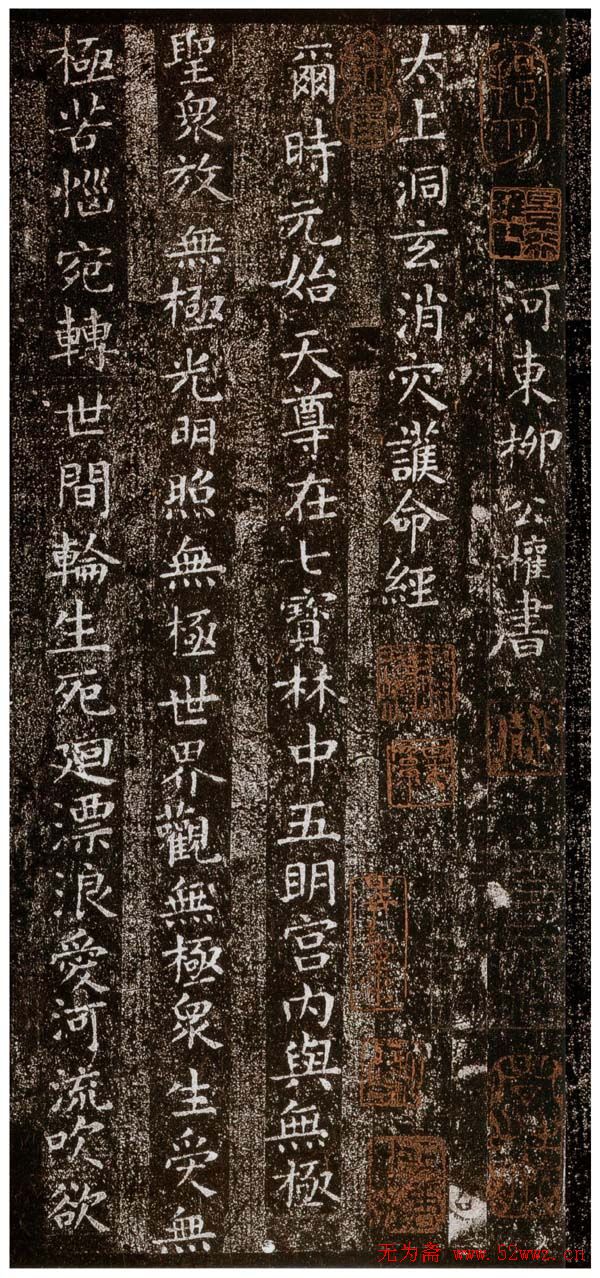 河東柳公權書
太上洞玄消灾護命經
爾時元始天尊在七寶林中五明宫内與無極
聖衆放無極光明照無極世界觀無極衆生受無
極苦惱宛轉世間輪生死廻漂浪愛河流吹欲
无为斋 www.52wwz.cn